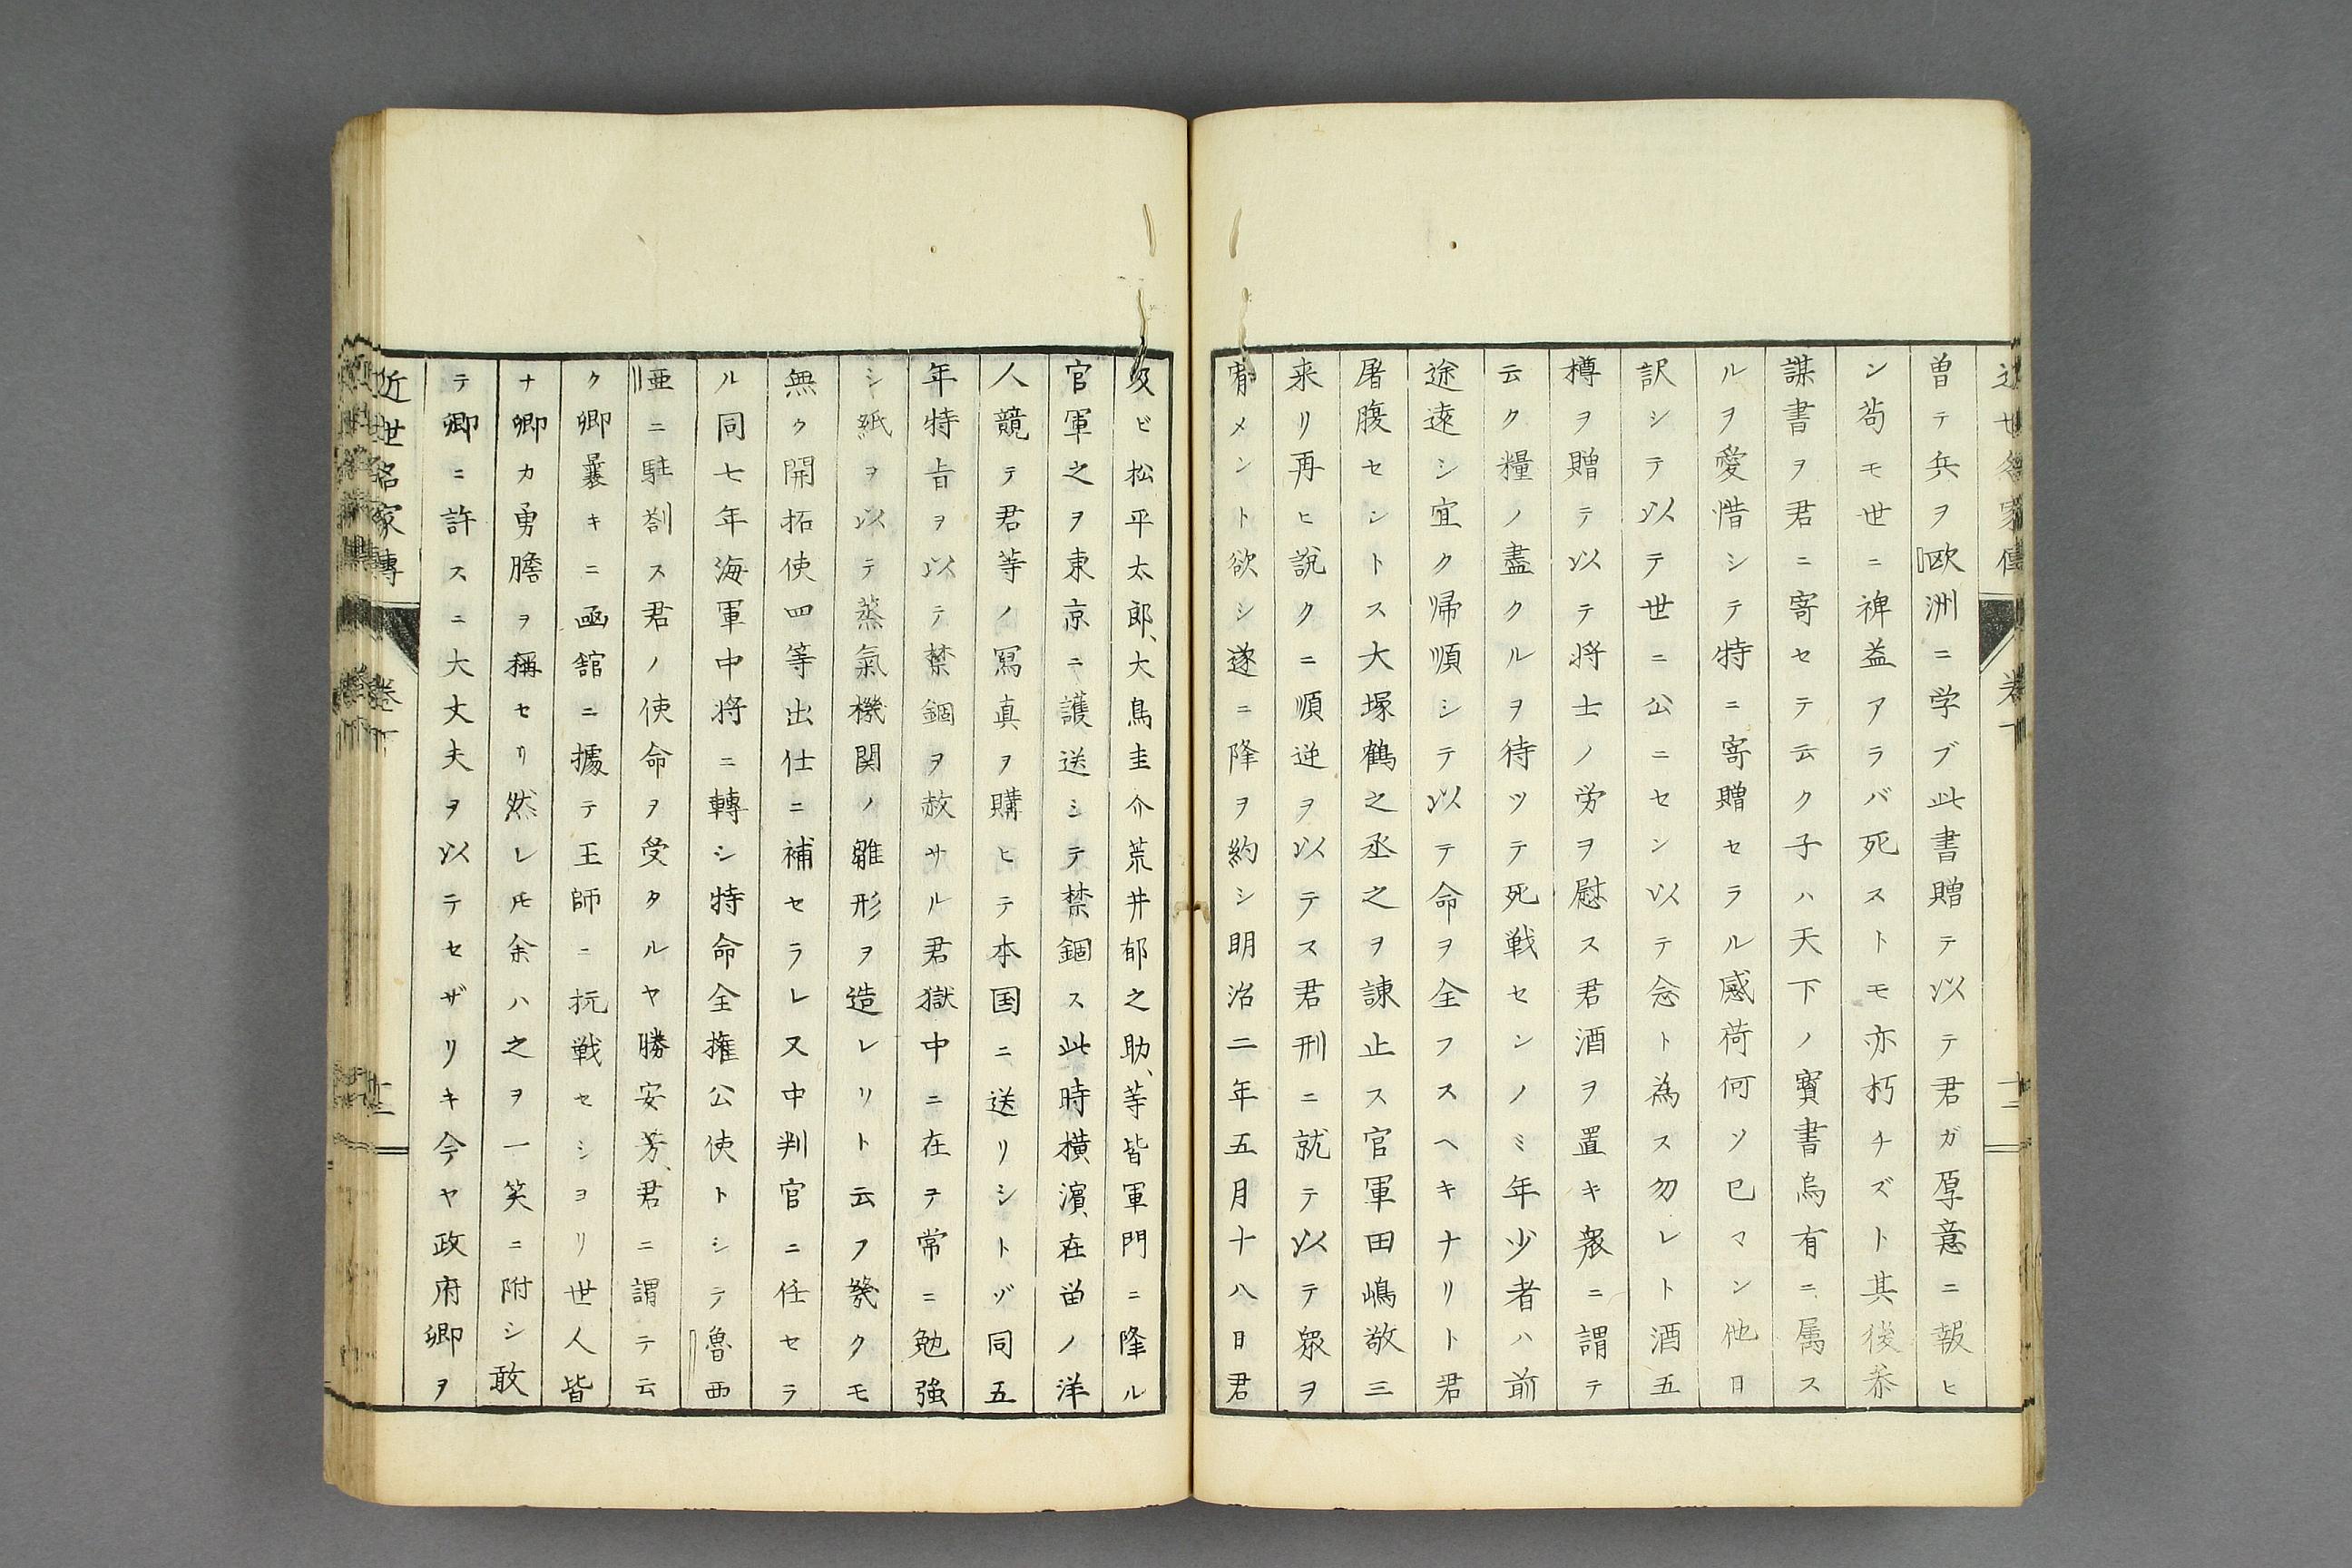 曽テ兵ヲ欧洲ニ学ブ此書贈テ以テ君ガ厚意ニ報ヒ
ン苟モ世ニ裨益アラバ死ストモ亦朽チズト其後叅
謀書ヲ君ニ寄セテ云ク子ハ天下ノ寳書烏有ニ属ス
ルヲ愛惜シテ特ニ寄贈セラル感荷何ソ已マン他日
訳シテ以テ世ニ公ニセン以テ念ト為ス勿レト酒五
樽ヲ贈テ以テ将士ノ労ヲ慰ス君酒ヲ置キ衆ニ謂テ
云ク糧ノ盡クルヲ待ツテ死戦センノミ年少者ハ前
途遠シ宜ク帰順シテ以テ命ヲ全フスヘキナリト君
屠腹セントス大塚鶴之丞之ヲ諌止ス官軍田嶋敬三
来リ再ヒ説クニ順逆ヲ以テス君刑ニ就テ以テ衆ヲ
宥メント欲シ遂ニ降ヲ約シ明治二年五月十八日君
及ビ松平太郎、大鳥圭介荒井郁之助、等皆軍門ニ降ル
官軍之ヲ東京ニ護送シテ禁錮ス此時横濱、在留ノ洋
人競テ君等ノ冩真ヲ購ヒテ本国ニ送リシトゾ同五
年特旨ヲ以テ禁錮ヲ赦サル君獄中ニ在テ常ニ勉強
シ紙ヲ以テ蒸氣機関ノ雛形ヲ造レリト云フ幾クモ
無ク開拓使四等出仕ニ補セラレ又中判官ニ任セラ
ル同七年海軍中将ニ轉シ特命全権公使トシテ魯西
亜ニ駐劄ス君ノ使命ヲ受タルヤ勝安芳、君ニ謂テ云
ク卿曩キニ凾舘ニ據テ王師ニ抗戦セシヨリ世人皆
ナ卿カ勇膽ヲ稱セリ然レ𪜈余ハ之ヲ一笑ニ附シ敢
テ卿ニ許スニ大丈夫ヲ以テセザリキ今ヤ政府卿ヲ
近世名家傳 卷一 十二